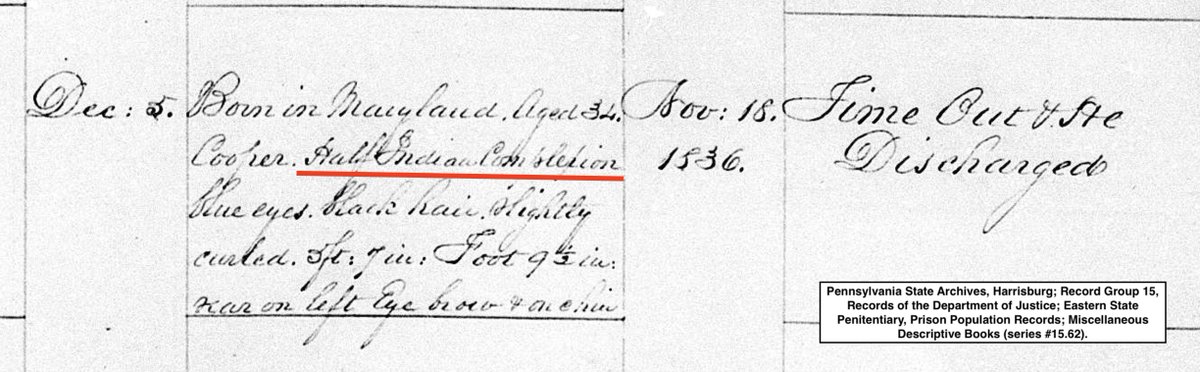 Dec: 5.
Born in Maryland. Aged 34.
Cooper. Half Indian Complexion
blue eyes. black hair. Slightly
curled. 5ft: 7in: Foot 9½ in:
scar on left Eye brow & on chin
Nov: 18.
1836.
Time Out & He
Discharged
Pennsylvania State Archives, Harrisburg; Record Group 15,
Records of the Department of Justice; Eastern State
Penitentiary, Prison Population Records; Miscellaneous
Descriptive Books (series #15.62).